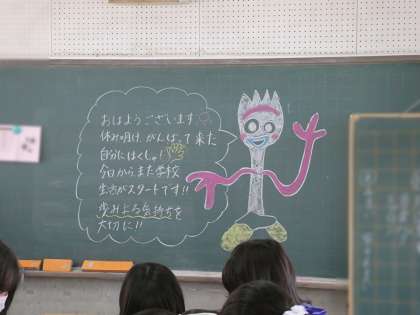 おはようございます
休み明け、がんばって来た
自分にはくしゅ!
今日から、また学校
生活がスタートです!!
歩みよる気持ちを
大切に!!